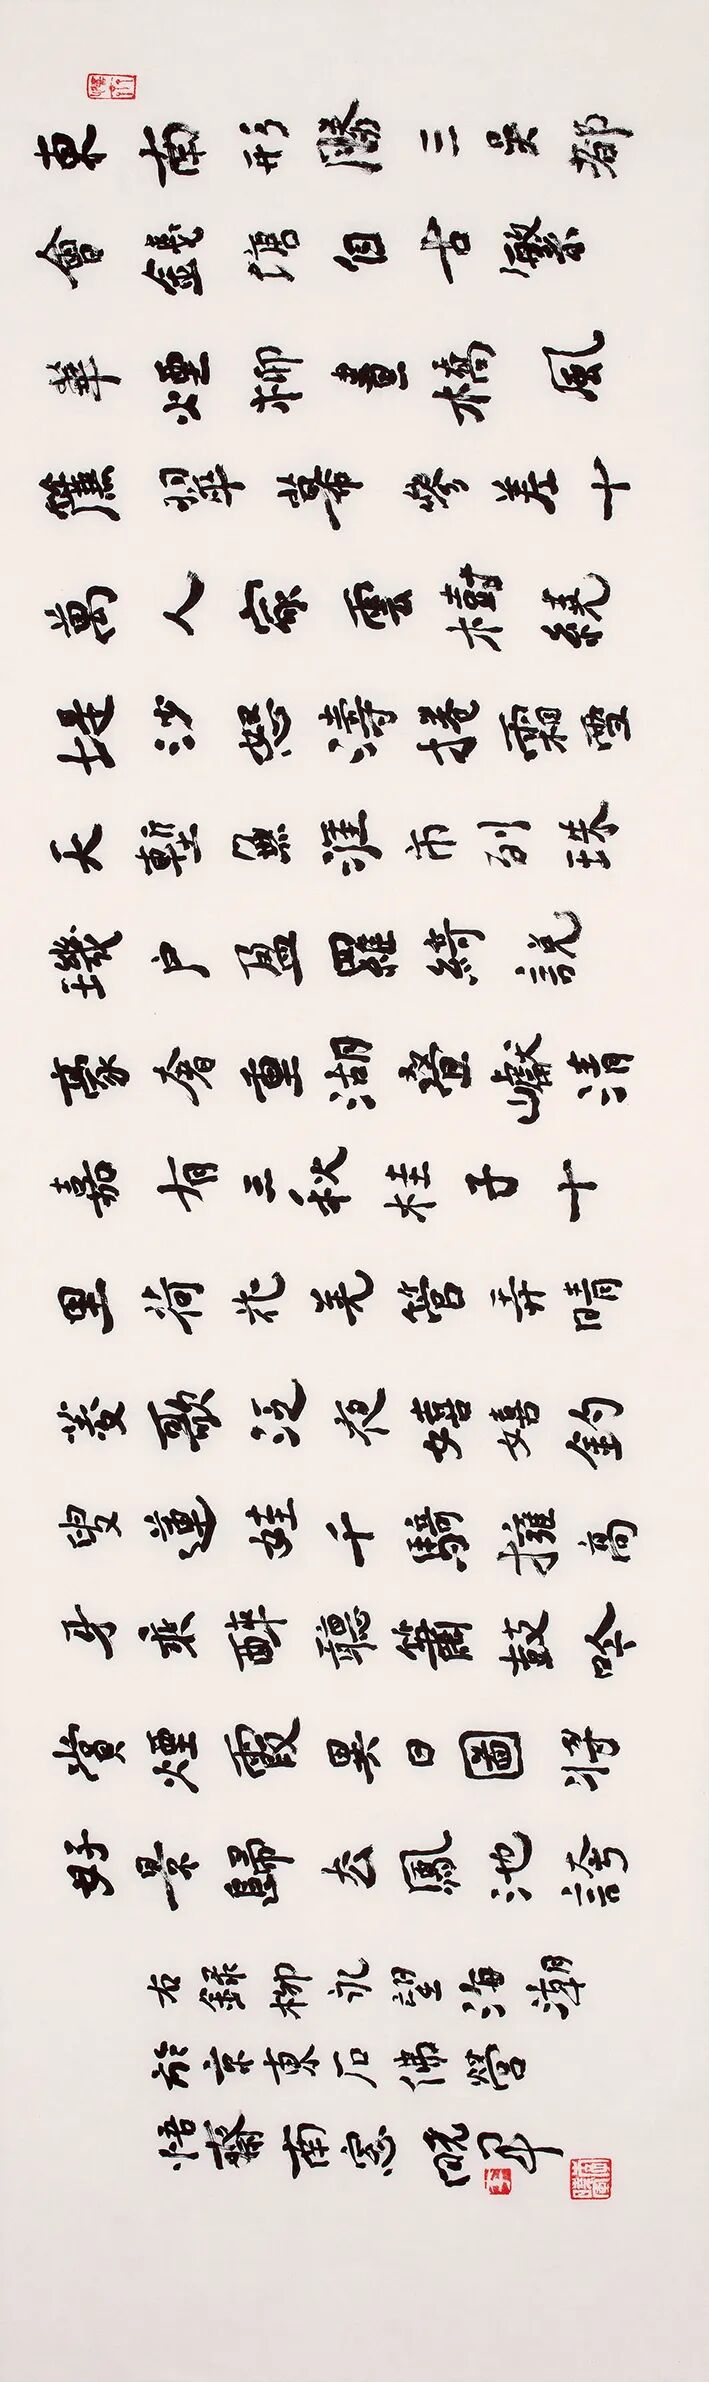 東南形勝三吳都
會錢塘自古繁
華煙柳畫橋風
簾翠幕參差十
萬人家雲樹繞
堤沙怒濤捲霜雪
天塹無涯市列珠
璣戶盈羅綺競
豪奢重湖疊巘清
嘉有三秋桂子十
里荷花羌管弄晴
菱歌泛夜嬉嬉釣
叟蓮娃千騎擁高
牙乘醉聽簫鼓吟
賞煙霞異日圖將
好景歸去鳳池誇
右錄柳永望海潮
於京東石佛營
悟齋南窗